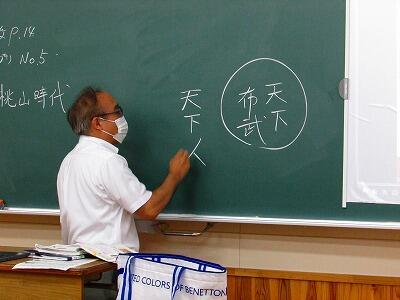 P.14
No.5
桃山時代
天下人
天下
布武
UNITED COLORS OF BENETTON